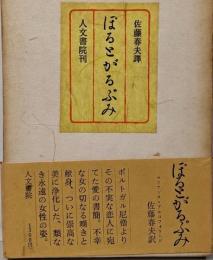 佐藤春夫譯
ぽるとがるぶみ
人文書院刊
ぽるとがるぶみ
佐藤春夫訳
ポルトガル尼僧より
その不実な恋人に宛
てた愛の書簡。不幸
な女の切なる嘆き
献身、ついに崇高な
美に浄化した、類な
き永遠の女性の姿。
人文書院